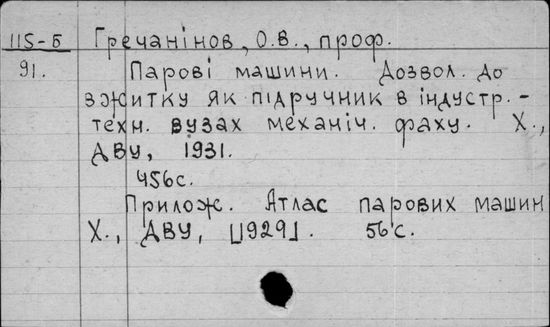 115-Б Гречанінов, О.В., проф.
91. Парові машини. Дозвол. до
вжитку як підручник в індустр.-
техн. вузах механіч. фаху. Х.,
ДВУ, 1931.
456с.
Прилож. Атлас парових машин
Х., ДВУ, [1929]. 56 с.